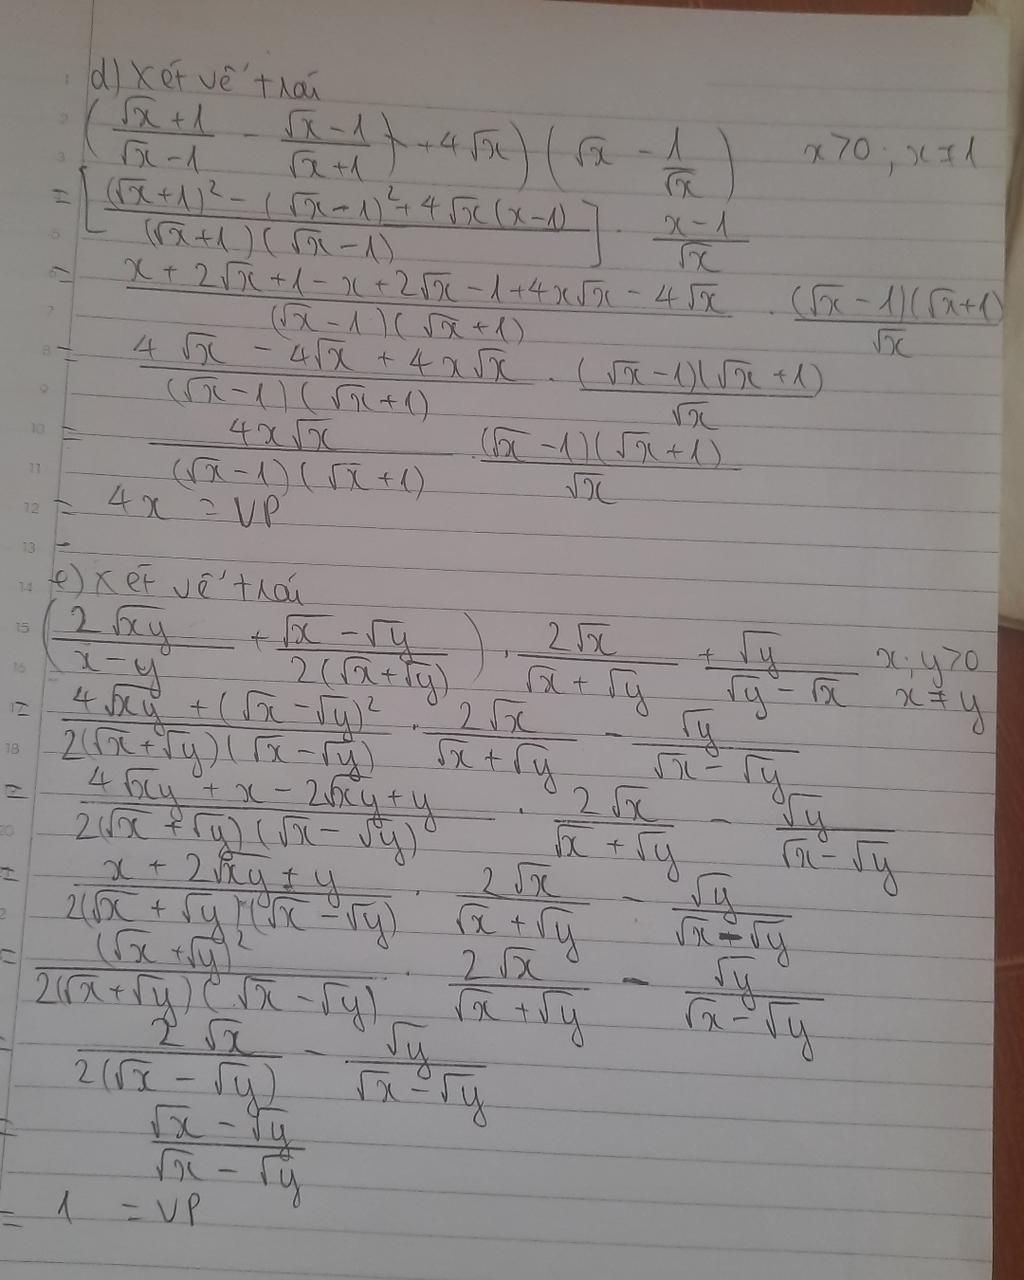 d) Xét vế trái
( (√x + 1)/(√x - 1) - (√x - 1)/(√x + 1) + 4√x ) ( √x - 1/√x ) x > 0 ; x ≠ 1
= [ ((√x + 1)² - (√x - 1)² + 4√x (x - 1)) / ((√x + 1)(√x - 1)) ] . (x - 1)/√x
= (x + 2√x + 1 - x + 2√x - 1 + 4x√x - 4√x) / ((√x - 1)(√x + 1)) . ((√x - 1)(√x + 1))/√x
= (4√x - 4√x + 4x√x) / ((√x - 1)(√x + 1)) . ((√x - 1)(√x + 1))/√x
= 4x√x / ((√x - 1)(√x + 1)) . ((√x - 1)(√x + 1))/√x
= 4x = VP
e) Xét vế trái
( 2√xy/(x - y) + (√x - √y)/(2(√x + √y)) ) . 2√x/(√x + √y) + √y/(√y - √x) x ; y > 0 x ≠ y
= (4√xy + (√x - √y)²) / (2(√x + √y)(√x - √y)) . 2√x/(√x + √y) - √y/(√x - √y)
= (4√xy + x - 2√xy + y) / (2(√x + √y)(√x - √y)) . 2√x/(√x + √y) - √y/(√x - √y)
= (x + 2√xy + y) / (2(√x + √y)(√x - √y)) . 2√x/(√x + √y) - √y/(√x - √y)
= (√x + √y)² / (2(√x + √y)(√x - √y)) . 2√x/(√x + √y) - √y/(√x - √y)
= 2√x/(2(√x - √y)) - √y/(√x - √y)
= (√x - √y)/(√x - √y)
= 1 = VP